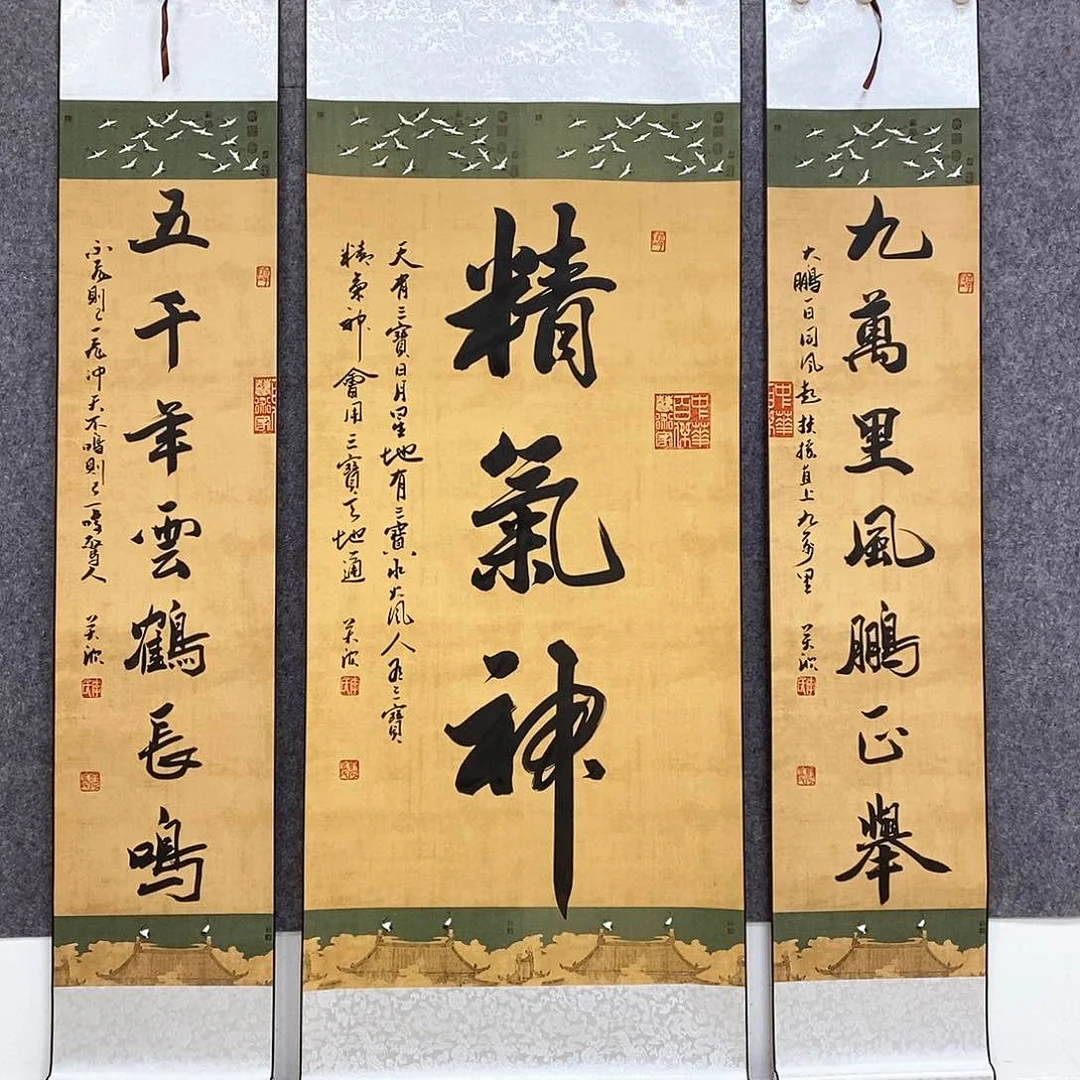 九萬里風鵬正舉
大鵬一日同風起扶搖直上九萬里
精氣神
中華
百傑
天有三寶日月星地有三寶水火風人有三寶
精氣神會用三寶天地通
五千年雲鶴長鳴
不飛則已一飛冲天不鳴則已一鳴驚人